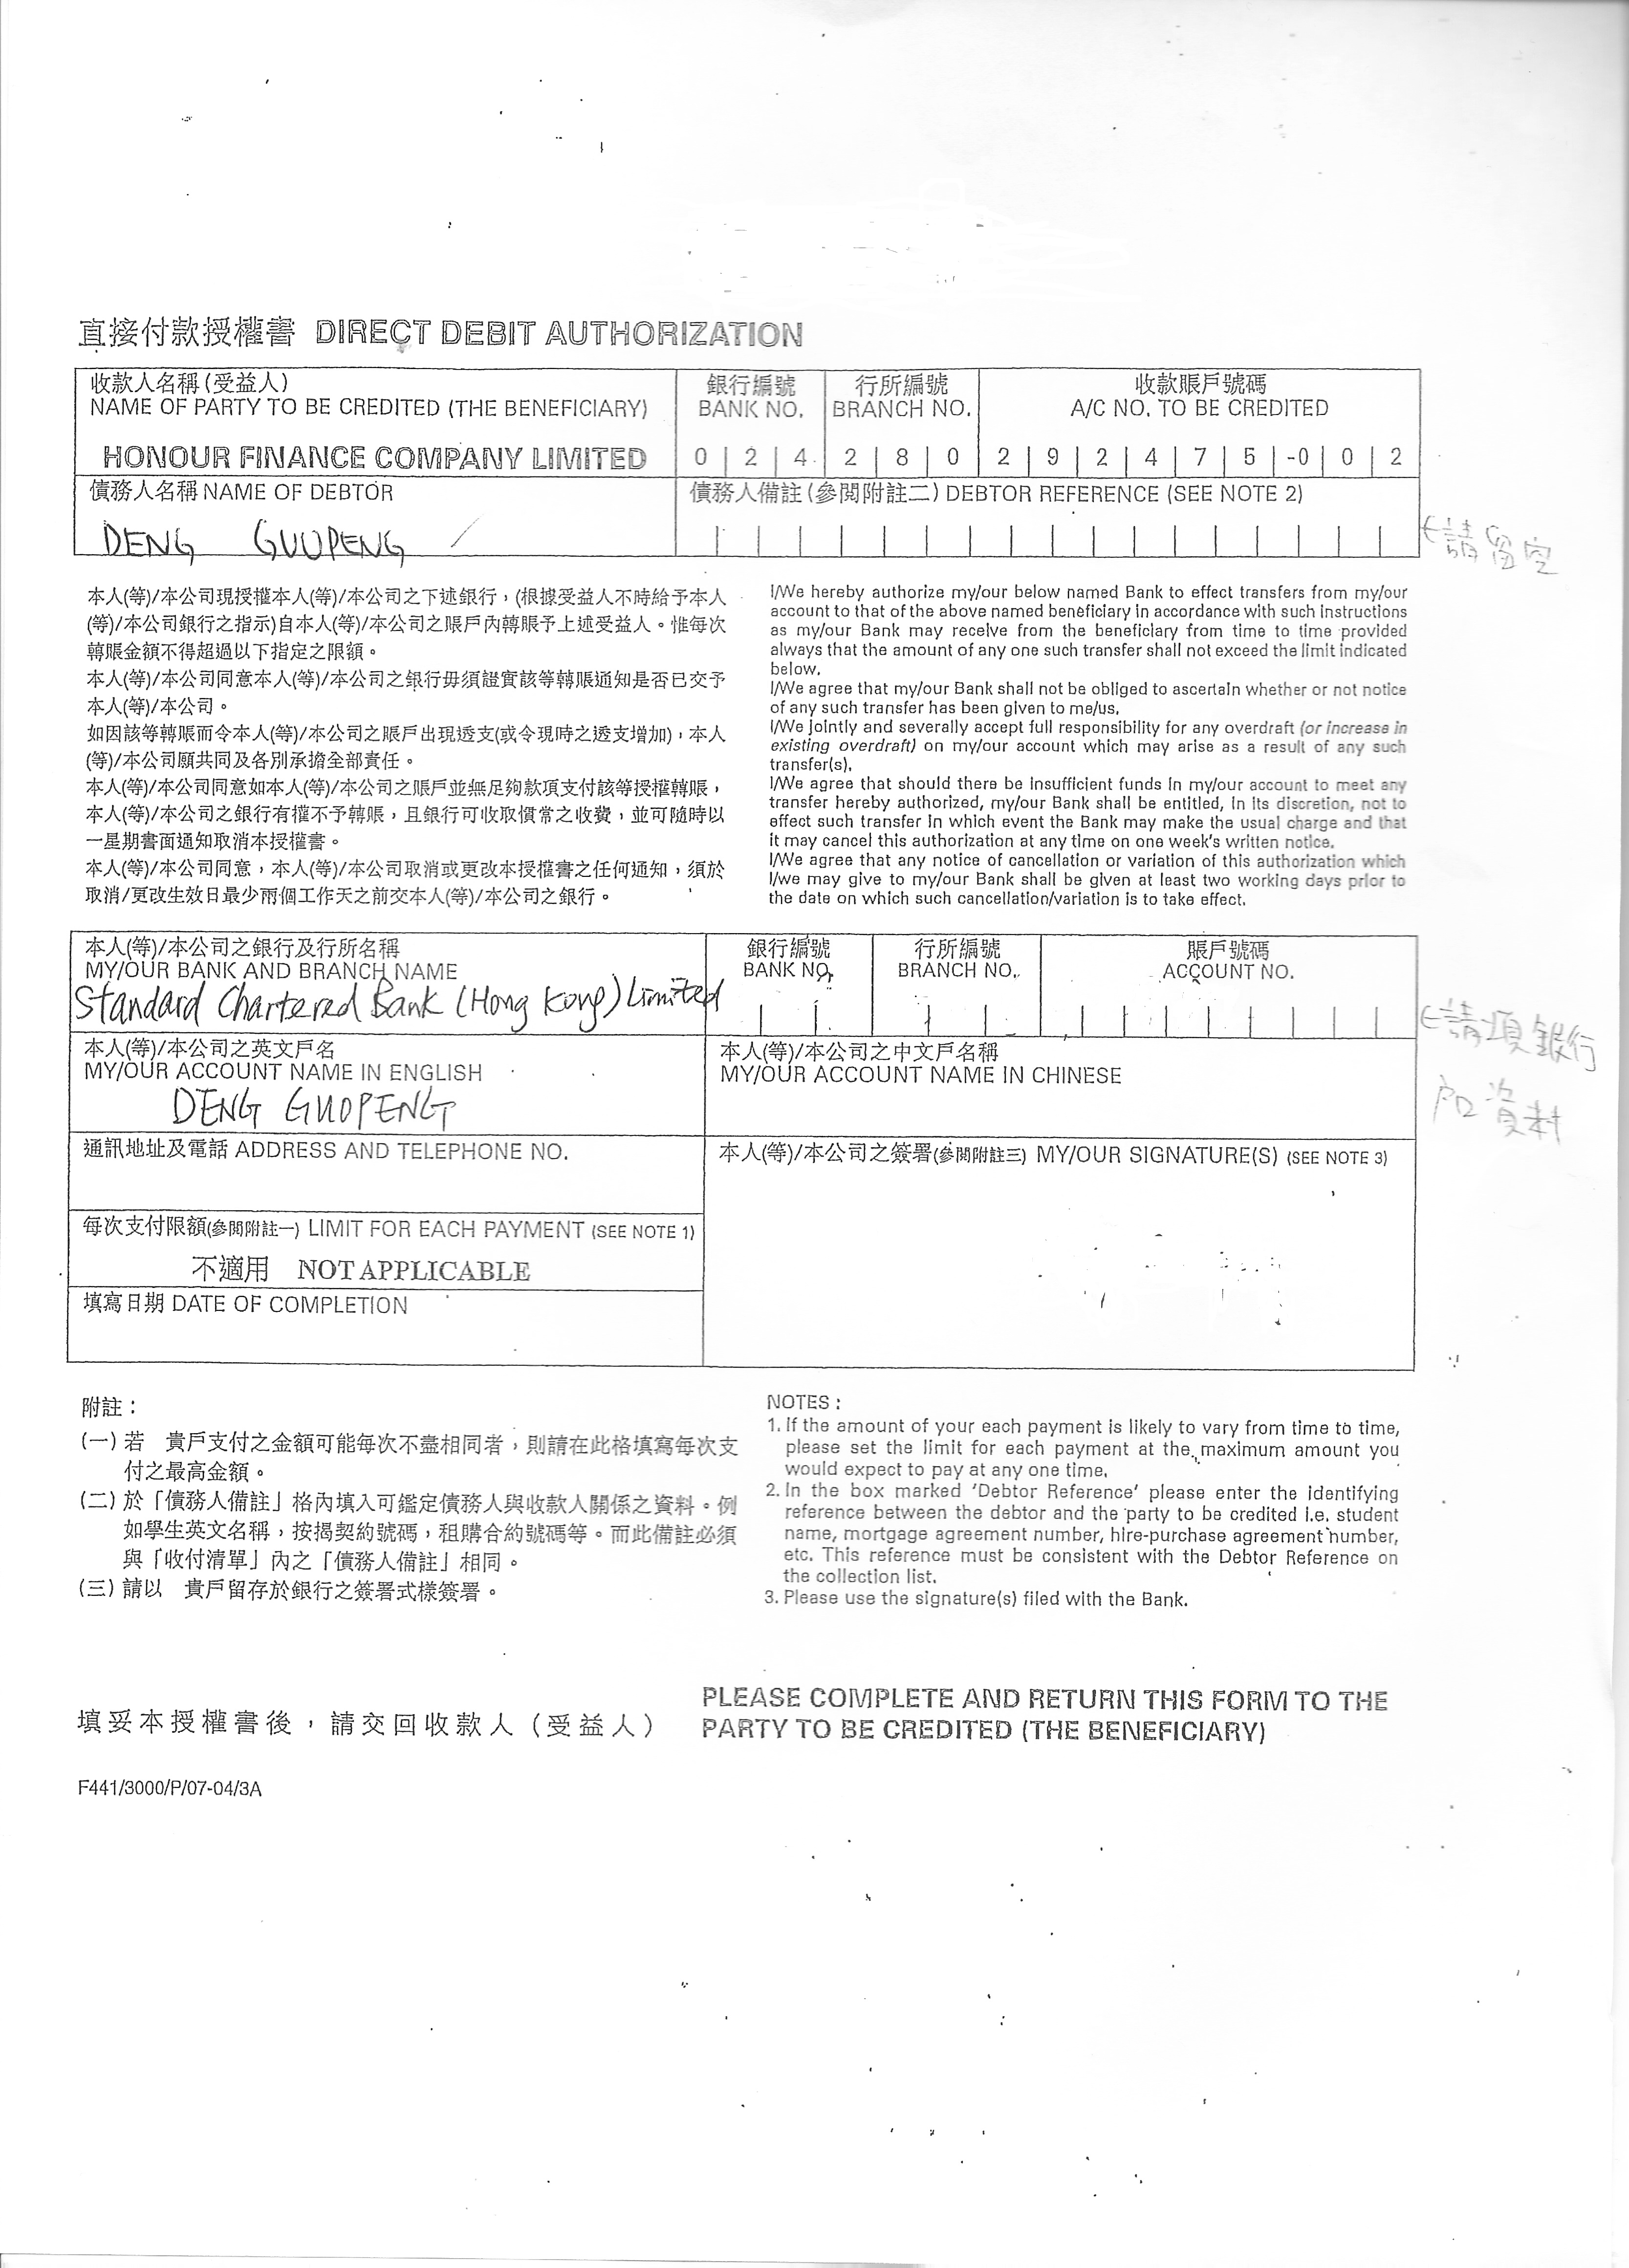 直接付款授權書 DIRECT DEBIT AUTHORIZATION
收款人名稱(受益人)
NAME OF PARTY TO BE CREDITED (THE BENEFICIARY)
HONOUR FINANCE COMPANY LIMITED
銀行編號
BANK NO.
0 2 4
行所編號
BRANCH NO.
2 8 0
收款賬戶號碼
A/C NO. TO BE CREDITED
2 9 2 4 7 5 -0 0 2
債務人名稱 NAME OF DEBTOR
DENG GUOPENG
債務人備註(參閱附註二) DEBTOR REFERENCE (SEE NOTE 2)
請留空
本人(等)/本公司現授權本人(等)/本公司之下述銀行,(根據受益人不時給予本人
(等)/本公司銀行之指示)自本人(等)/本公司之賬戶內轉賬予上述受益人。惟每次
轉賬金額不得超過以下指定之限額。
本人(等)/本公司同意本人(等)/本公司之銀行毋須證實該等轉賬通知是否已交予
本人(等)/本公司。
如因該等轉賬而令本人(等)/本公司之賬戶出現透支(或令現時之透支增加),本人
(等)/本公司願共同及各別承擔全部責任。
本人(等)/本公司同意如本人(等)/本公司之賬戶並無足夠款項支付該等授權轉賬,
本人(等)/本公司之銀行有權不予轉賬,且銀行可收取慣常之收費,並可隨時以
一星期書面通知取消本授權書。
本人(等)/本公司同意,本人(等)/本公司取消或更改本授權書之任何通知,須於
取消/更改生效日最少兩個工作天之前交本人(等)/本公司之銀行。
I/We hereby authorize my/our below named Bank to effect transfers from my/our
account to that of the above named beneficiary in accordance with such instructions
as my/our Bank may receive from the beneficiary from time to time provided
always that the amount of any one such transfer shall not exceed the limit indicated
below.
I/We agree that my/our Bank shall not be obliged to ascertain whether or not notice
of any such transfer has been given to me/us.
I/We jointly and severally accept full responsibility for any overdraft (or increase in
existing overdraft) on my/our account which may arise as a result of any such
transfer(s).
I/We agree that should there be insufficient funds in my/our account to meet any
transfer hereby authorized, my/our Bank shall be entitled, in its discretion, not to
effect such transfer in which event the Bank may make the usual charge and that
it may cancel this authorization at any time on one week's written notice.
I/We agree that any notice of cancellation or variation of this authorization which
I/we may give to my/our Bank shall be given at least two working days prior to
the date on which such cancellation/variation is to take effect.
本人(等)/本公司之銀行及行所名稱
MY/OUR BANK AND BRANCH NAME
Standard Chartered Bank (Hong Kong) Limited
銀行編號
BANK NO.
行所編號
BRANCH NO.
賬戶號碼
ACCOUNT NO.
請填銀行
戶口資料
本人(等)/本公司之英文戶名
MY/OUR ACCOUNT NAME IN ENGLISH
DENG GUOPENG
本人(等)/本公司之中文戶名稱
MY/OUR ACCOUNT NAME IN CHINESE
通訊地址及電話 ADDRESS AND TELEPHONE NO.
本人(等)/本公司之簽署(參閱附註三) MY/OUR SIGNATURE(S) (SEE NOTE 3)
每次支付限額(參閱附註一) LIMIT FOR EACH PAYMENT (SEE NOTE 1)
不適用 NOT APPLICABLE
填寫日期 DATE OF COMPLETION
附註:
(一) 若 貴戶支付之金額可能每次不盡相同者,則請在此格填寫每次支
付之最高金額。
(二) 於「債務人備註」格內填入可鑑定債務人與收款人關係之資料。例
如學生英文名稱,按揭契約號碼,租購合約號碼等。而此備註必須
與「收付清單」內之「債務人備註」相同。
(三) 請以 貴戶留存於銀行之簽署式樣簽署。
NOTES :
1. If the amount of your each payment is likely to vary from time to time,
please set the limit for each payment at the maximum amount you
would expect to pay at any one time.
2. In the box marked 'Debtor Reference' please enter the identifying
reference between the debtor and the party to be credited i.e. student
name, mortgage agreement number, hire-purchase agreement number,
etc. This reference must be consistent with the Debtor Reference on
the collection list.
3. Please use the signature(s) filed with the Bank.
填妥本授權書後,請交回收款人(受益人)
PLEASE COMPLETE AND RETURN THIS FORM TO THE
PARTY TO BE CREDITED (THE BENEFICIARY)
F441/3000/P/07-04/3A